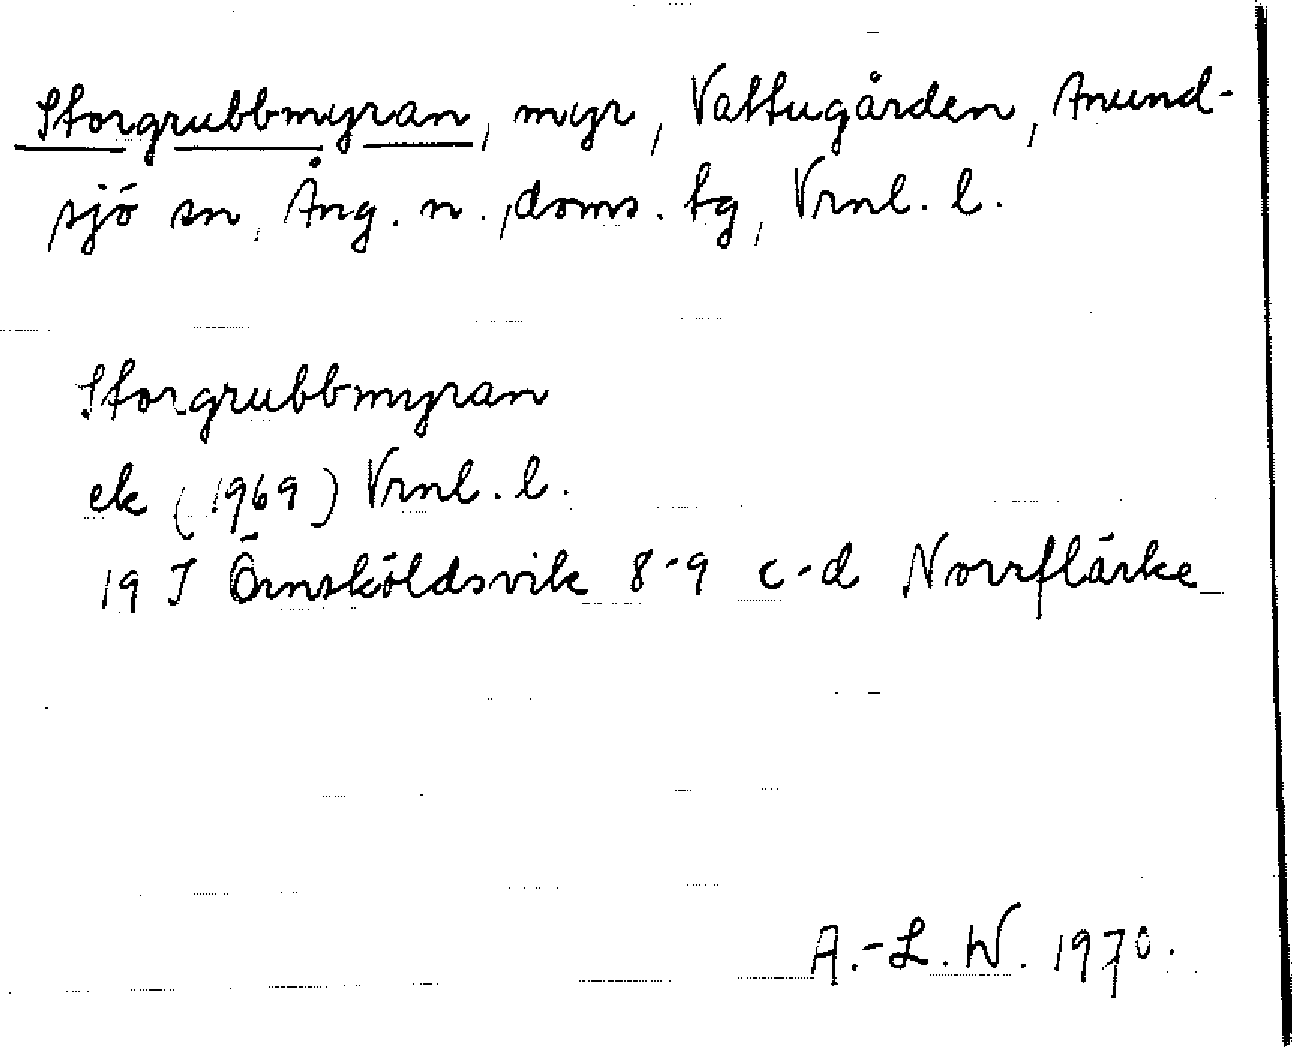 Storgrubbmyran, myr, Vattugården, Anund-
sjö sn, Ång. n., doms. tg, Vrnl. l.
Storgrubbmyran
ek (1969) Vrnl. l.
19 J Örnsköldsvik 8-9 c-d Norrflärke
A.-L. W. 1970.